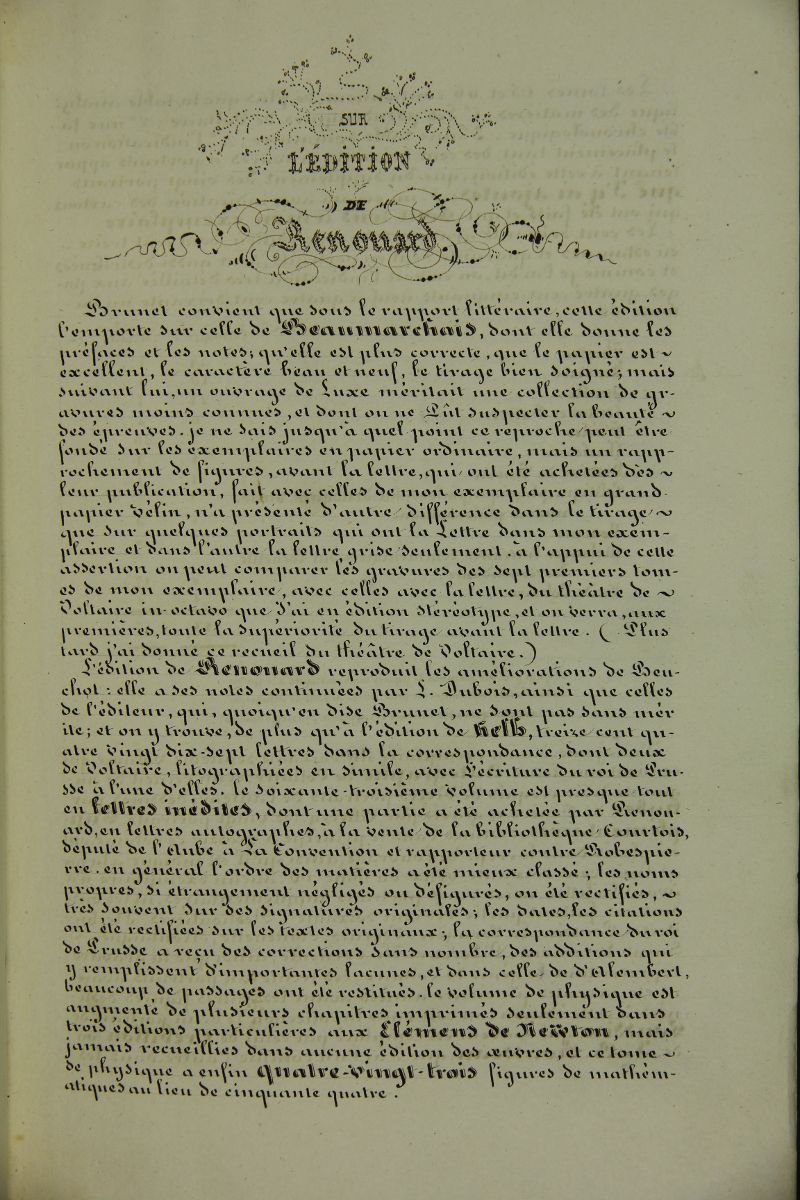 SUR
L'ÉDITION
DE
Renouard
Brunet convient que sous le rapport littéraire, cette édition
l'emporte sur celle de Beaumarchais, dont elle donne les
préfaces et les notes; qu'elle est plus correcte, que le papier est
excellent, le caractère beau et neuf, le tirage bien soigné; mais
suivant lui, un ouvrage de Luxe méritait une collection de gr-
avures moins connues, et dont on ne Pût suspecter la beauté
des épreuves. je ne sais jusqu'à quel point ce reproche peut être
fondé sur les exemplaires en papier ordinaire, mais un rapp-
rochement de figures, avant la lettre, qui ont été achetées dès
leur publication, fait avec celles de mon exemplaire en grand
papier Vélin, n'a présenté d'autre différence dans le tirage
que sur quelques portraits qui ont la Lettre dans mon exem-
plaire et dans l'autre la lettre grise seulement. a l'appui de cette
assertion on peut comparer les gravures des sept premiers tom-
es de mon exemplaire, avec celles avec la lettre, du théâtre de
Voltaire in-octavo que J'ai en édition stéréotype, et on verra, aux
premières, toute la supériorité du tirage avant la lettre. (Plus
tard j'ai donné ce recueil du théâtre de Voltaire.)
L'édition de Renouard reproduit les améliorations de Beu-
chot: elle a ses notes continuées par L. Dubois, ainsi que celles
de l'éditeur, qui, quoiqu'en dise Brunet, ne sont pas sans mér
ite; et on y trouve, de plus qu'à l'édition de Kell, treize cent qu-
atre vingt dix-sept lettres dans la correspondance, dont deux
de Voltaire, litographiées en simile, avec l'écriture du roi de Pru-
sse à l'une d'elles. le soixante-troisième volume est presque tout
en lettres inédites, dont une partie a été achetée par Renou-
ard, en lettres autographes, à la vente de la bibliothèque Courtois,
député de l'Aube à La Convention et rapporteur contre Robespie-
rre. en général l'ordre des matières a été mieux classé; les noms
propres, si étrangement négligés ou défigurés, on été rectifiés,
très souvent sur des signatures originales; les dates, les citations
ont été rectifiées sur les textes originaux; la correspondance du roi
de Prusse a reçu des corrections sans nombre, des additions qui
y remplissent d'importantes lacunes, et dans celle de d'Alembert,
beaucoup de passages ont été restitués. le volume de physique est
augmenté de plusieurs chapitres imprimés seulement dans
trois éditions particulières aux Elémens de Newton, mais
jamais recueillies dans aucune édition des œuvres, et ce tome
de physique a enfin quatre-vingt-trois figures de mathém-
atiques au lieu de cinquante quatre.